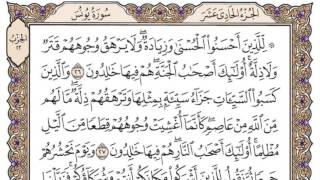 الجزء الحادي عشر
سورة يونس
الحزب ٢٢
۞ لِّلَّذِينَ أَحْسَنُوا۟ ٱلْحُسْنَىٰ وَزِيَادَةٌ ۖ وَلَا يَرْهَقُ وُجُوهَهُمْ قَتَرٌ
وَلَا ذِلَّةٌ ۚ أُو۟لَٰٓئِكَ أَصْحَٰبُ ٱلْجَنَّةِ ۖ هُمْ فِيهَا خَٰلِدُونَ ٢٦ وَٱلَّذِينَ
كَسَبُوا۟ ٱلسَّيِّـَٔاتِ جَزَآءُ سَيِّئَةٍۭ بِمِثْلِهَا وَتَرْهَقُهُمْ ذِلَّةٌ ۖ مَّا لَهُم
مِّنَ ٱللَّهِ مِنْ عَاصِمٍ ۖ كَأَنَّمَآ أُغْشِيَتْ وُجُوهُهُمْ قِطَعًا مِّنَ ٱلَّيْلِ
مُظْلِمًا ۚ أُو۟لَٰٓئِكَ أَصْحَٰبُ ٱلنَّارِ ۖ هُمْ فِيهَا خَٰلِدُونَ ٢٧ وَيَوْمَ نَحْشُرُهُمْ